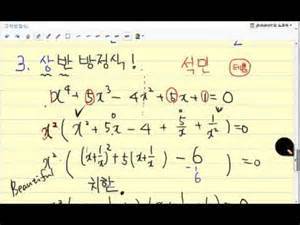 3. 상반 방정식!
석민
x⁴ + 5x³ - 4x² + 5x + 1 = 0
x² ( x² + 5x - 4 + 5/x + 1/x² ) = 0
x² · ( (x + 1/x)² + 5(x + 1/x) - 6 ) = 0
-1 6
Beautiful
치환.